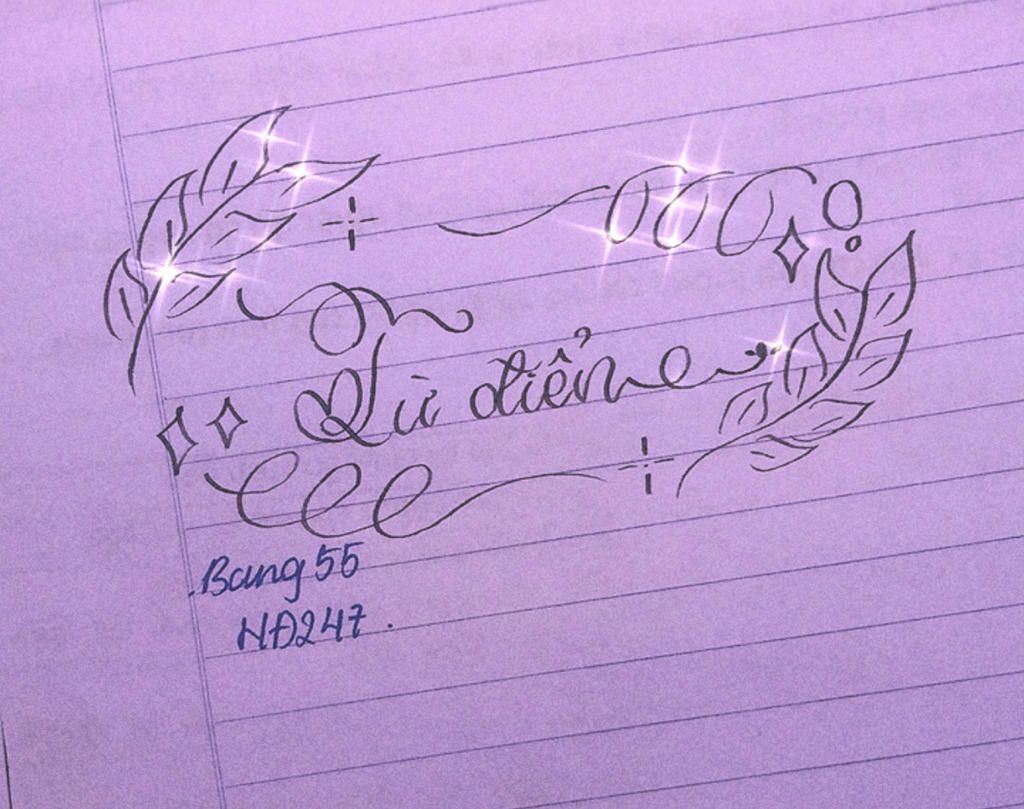 Từ điển
.Bang 55
HĐ247.